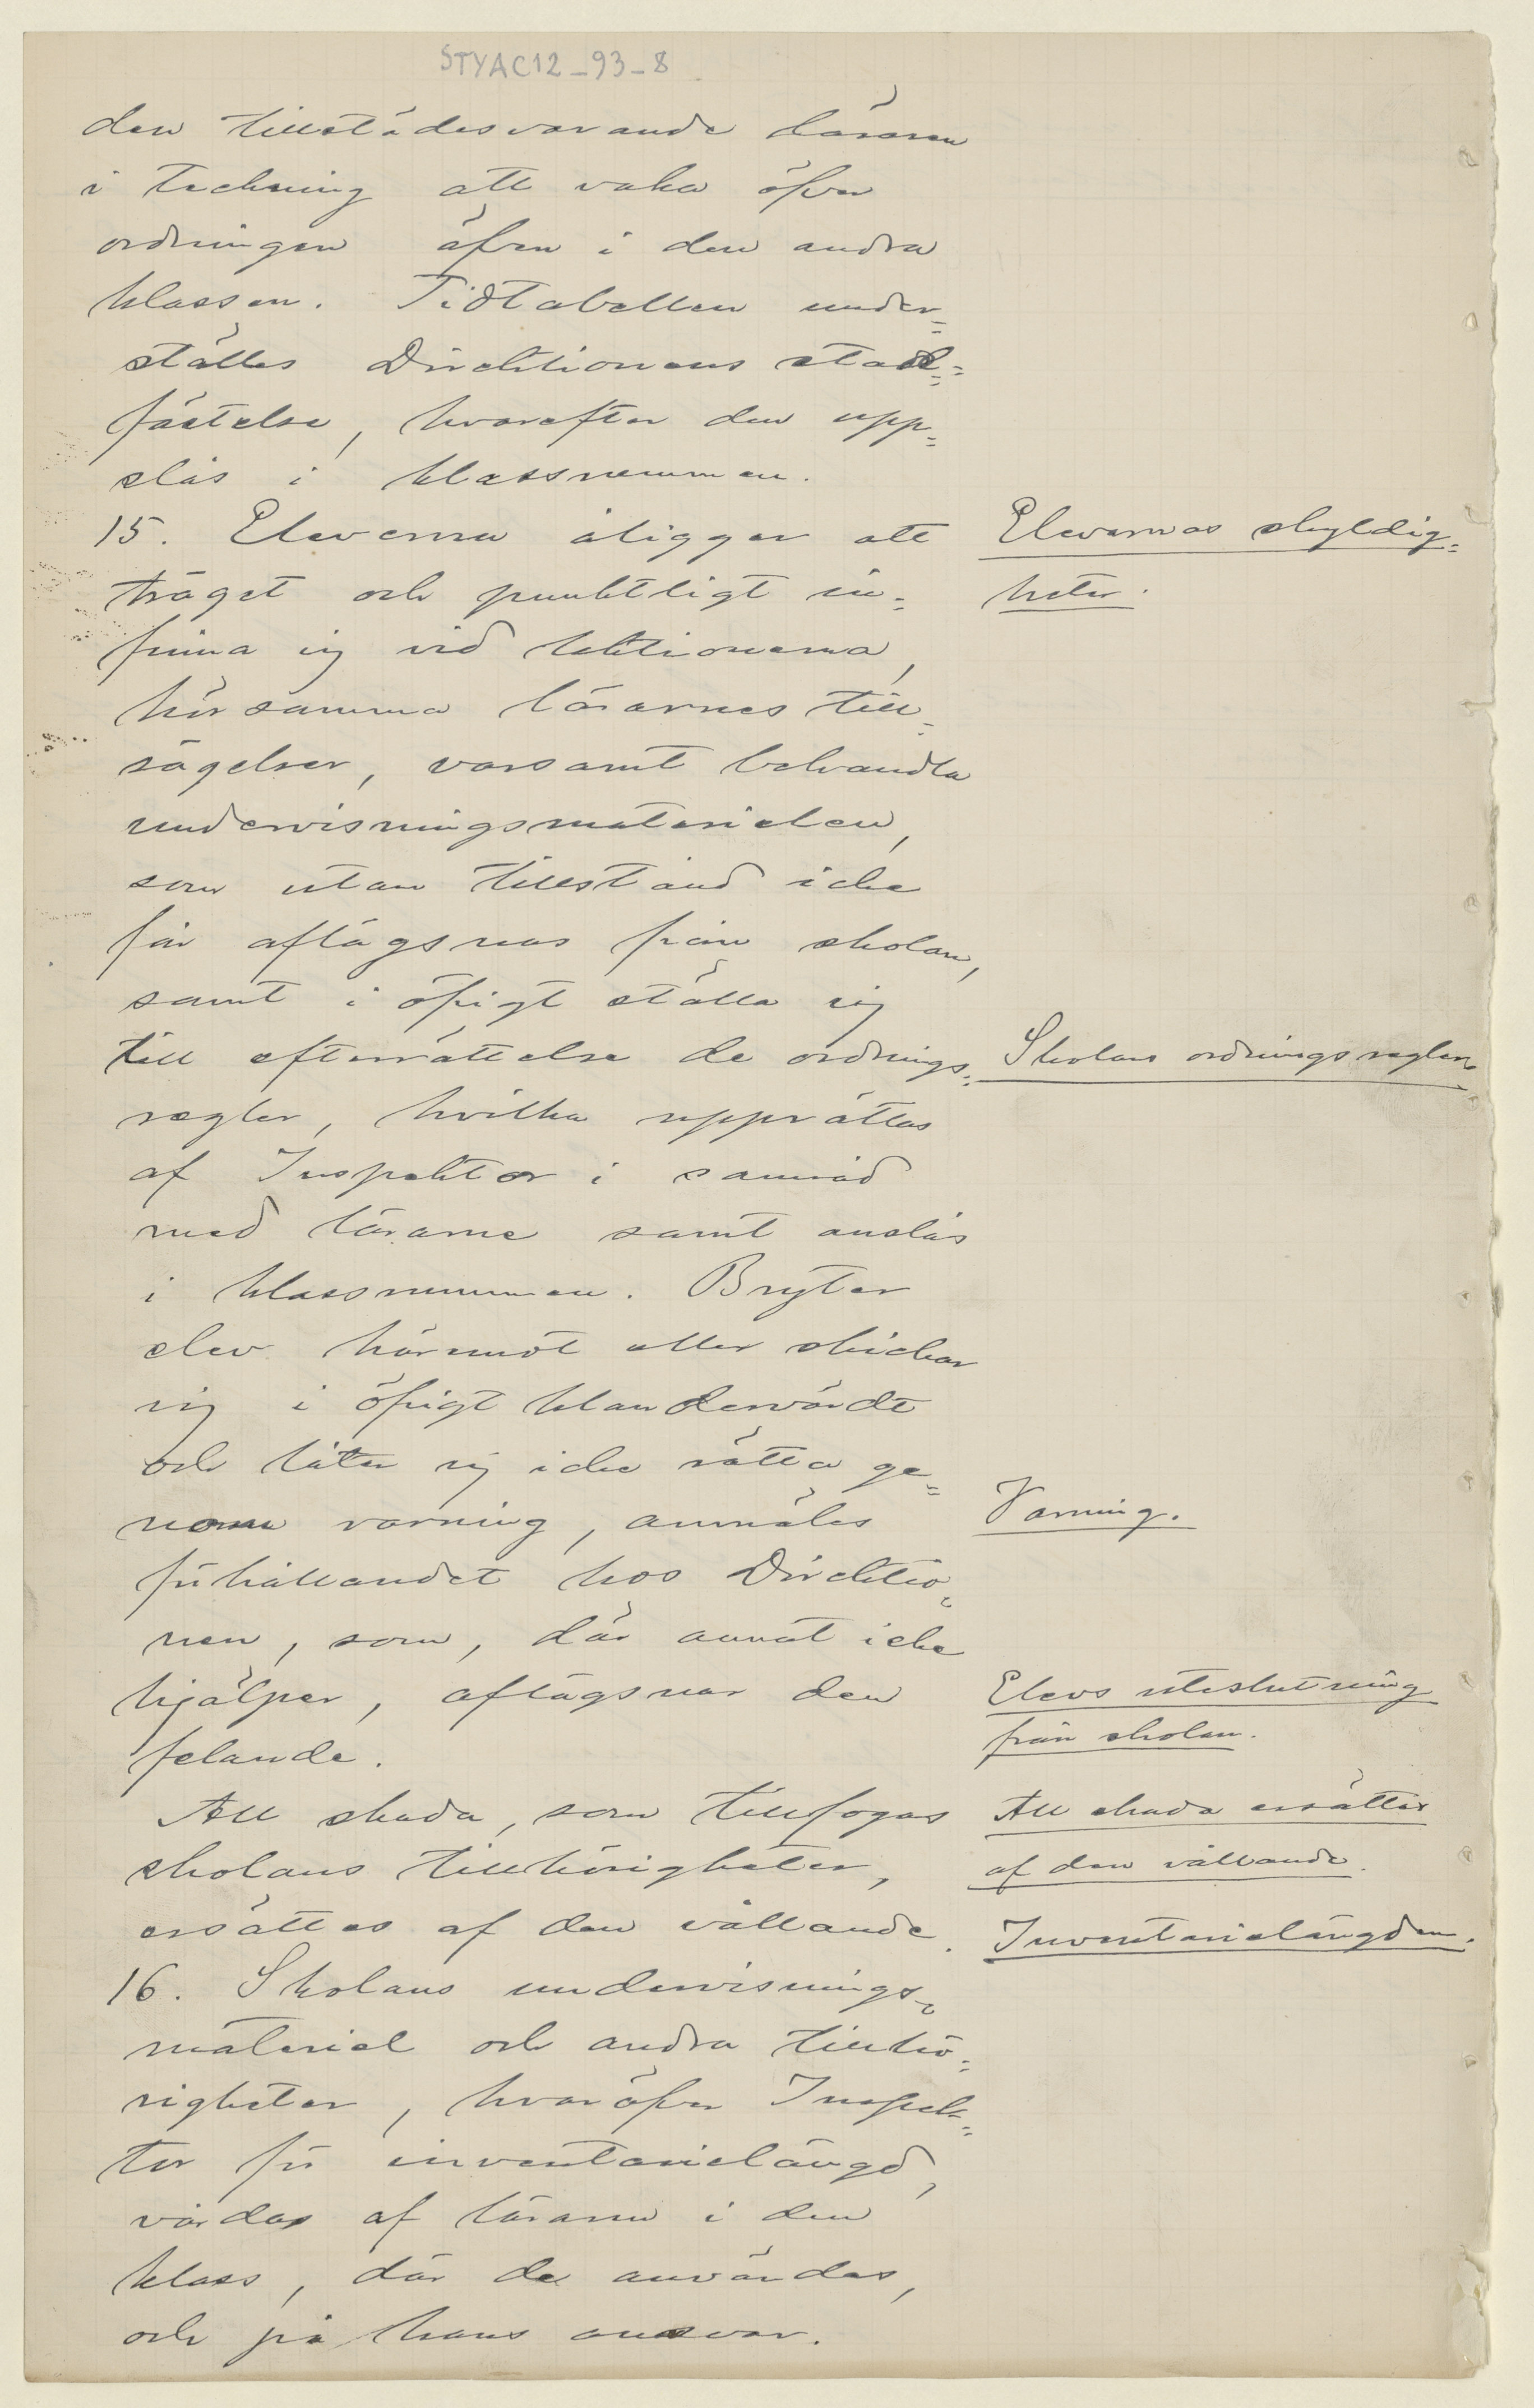 STYAC12_93_8
den tillstädesvarande läraren
i teckning att vaka öfver
ordningen äfven i den andra
klassen. Tidtabellen under=
ställes Direktionens stad=
fästelse, hvarefter den upp=
slås i klassrummen.
15. Eleverna åligger att
träget och punktligt in=
finna sig vid lektionerna,
hörsamma lärarnes till=
sägelser, varsamt behandla
undervisningsmaterielen,
som utan tillstånd icke
får aflägsnas från skolan,
samt i öfrigt ställa sig
till efterrättelse de ordnings=
regler, hvilka upprättas
af Inspektor i samråd
med lärarne samt anslås
i klassrummen. Bryter
elev härmot eller skickar
sig i öfrigt klandervärdt
och låter sig icke rätta ge=
nom varning, anmäles
förhållandet hos Direktio=
nen, som, där annat icke
hjälper, aflägsnar den
felande.
All skada, som tillfogas
skolans tillhörigheter,
ersättes af den vållande.
16. Skolans undervisnings=
materiel och andra tillhö=
righeter, hvaröfver Inspek=
tor för inventarielängd,
vårdas af läraren i den
klass, där de användas,
och på hans ansvar.
Elevernas skyldig=
heter.
Skolans ordningsregler.
Varning.
Elevs uteslutning
från skolan.
All skada ersättes
af den vållande.
Inventarielängden.